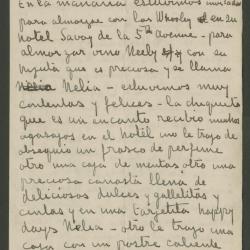 En la mañana estuvimos invitados
para almorzar con los Whooley en su
Hotel Savoy de la 5th avenue - para
almorzar vino Neely y con su
hijita que es preciosa y se llama
Nelia - estuvimos muy
contentos y felices - la chiquita
que es un encanto recibió muchos
agasajos en el Hotel uno le trajo de
obsequio un frasco de perfume
otro una caja de mentas otro una
preciosa canasta llena de
deliciosos dulces y galletitas y
cintas y en una tarjetita happy
days Nelia - otro le trajo una
con un postre caliente